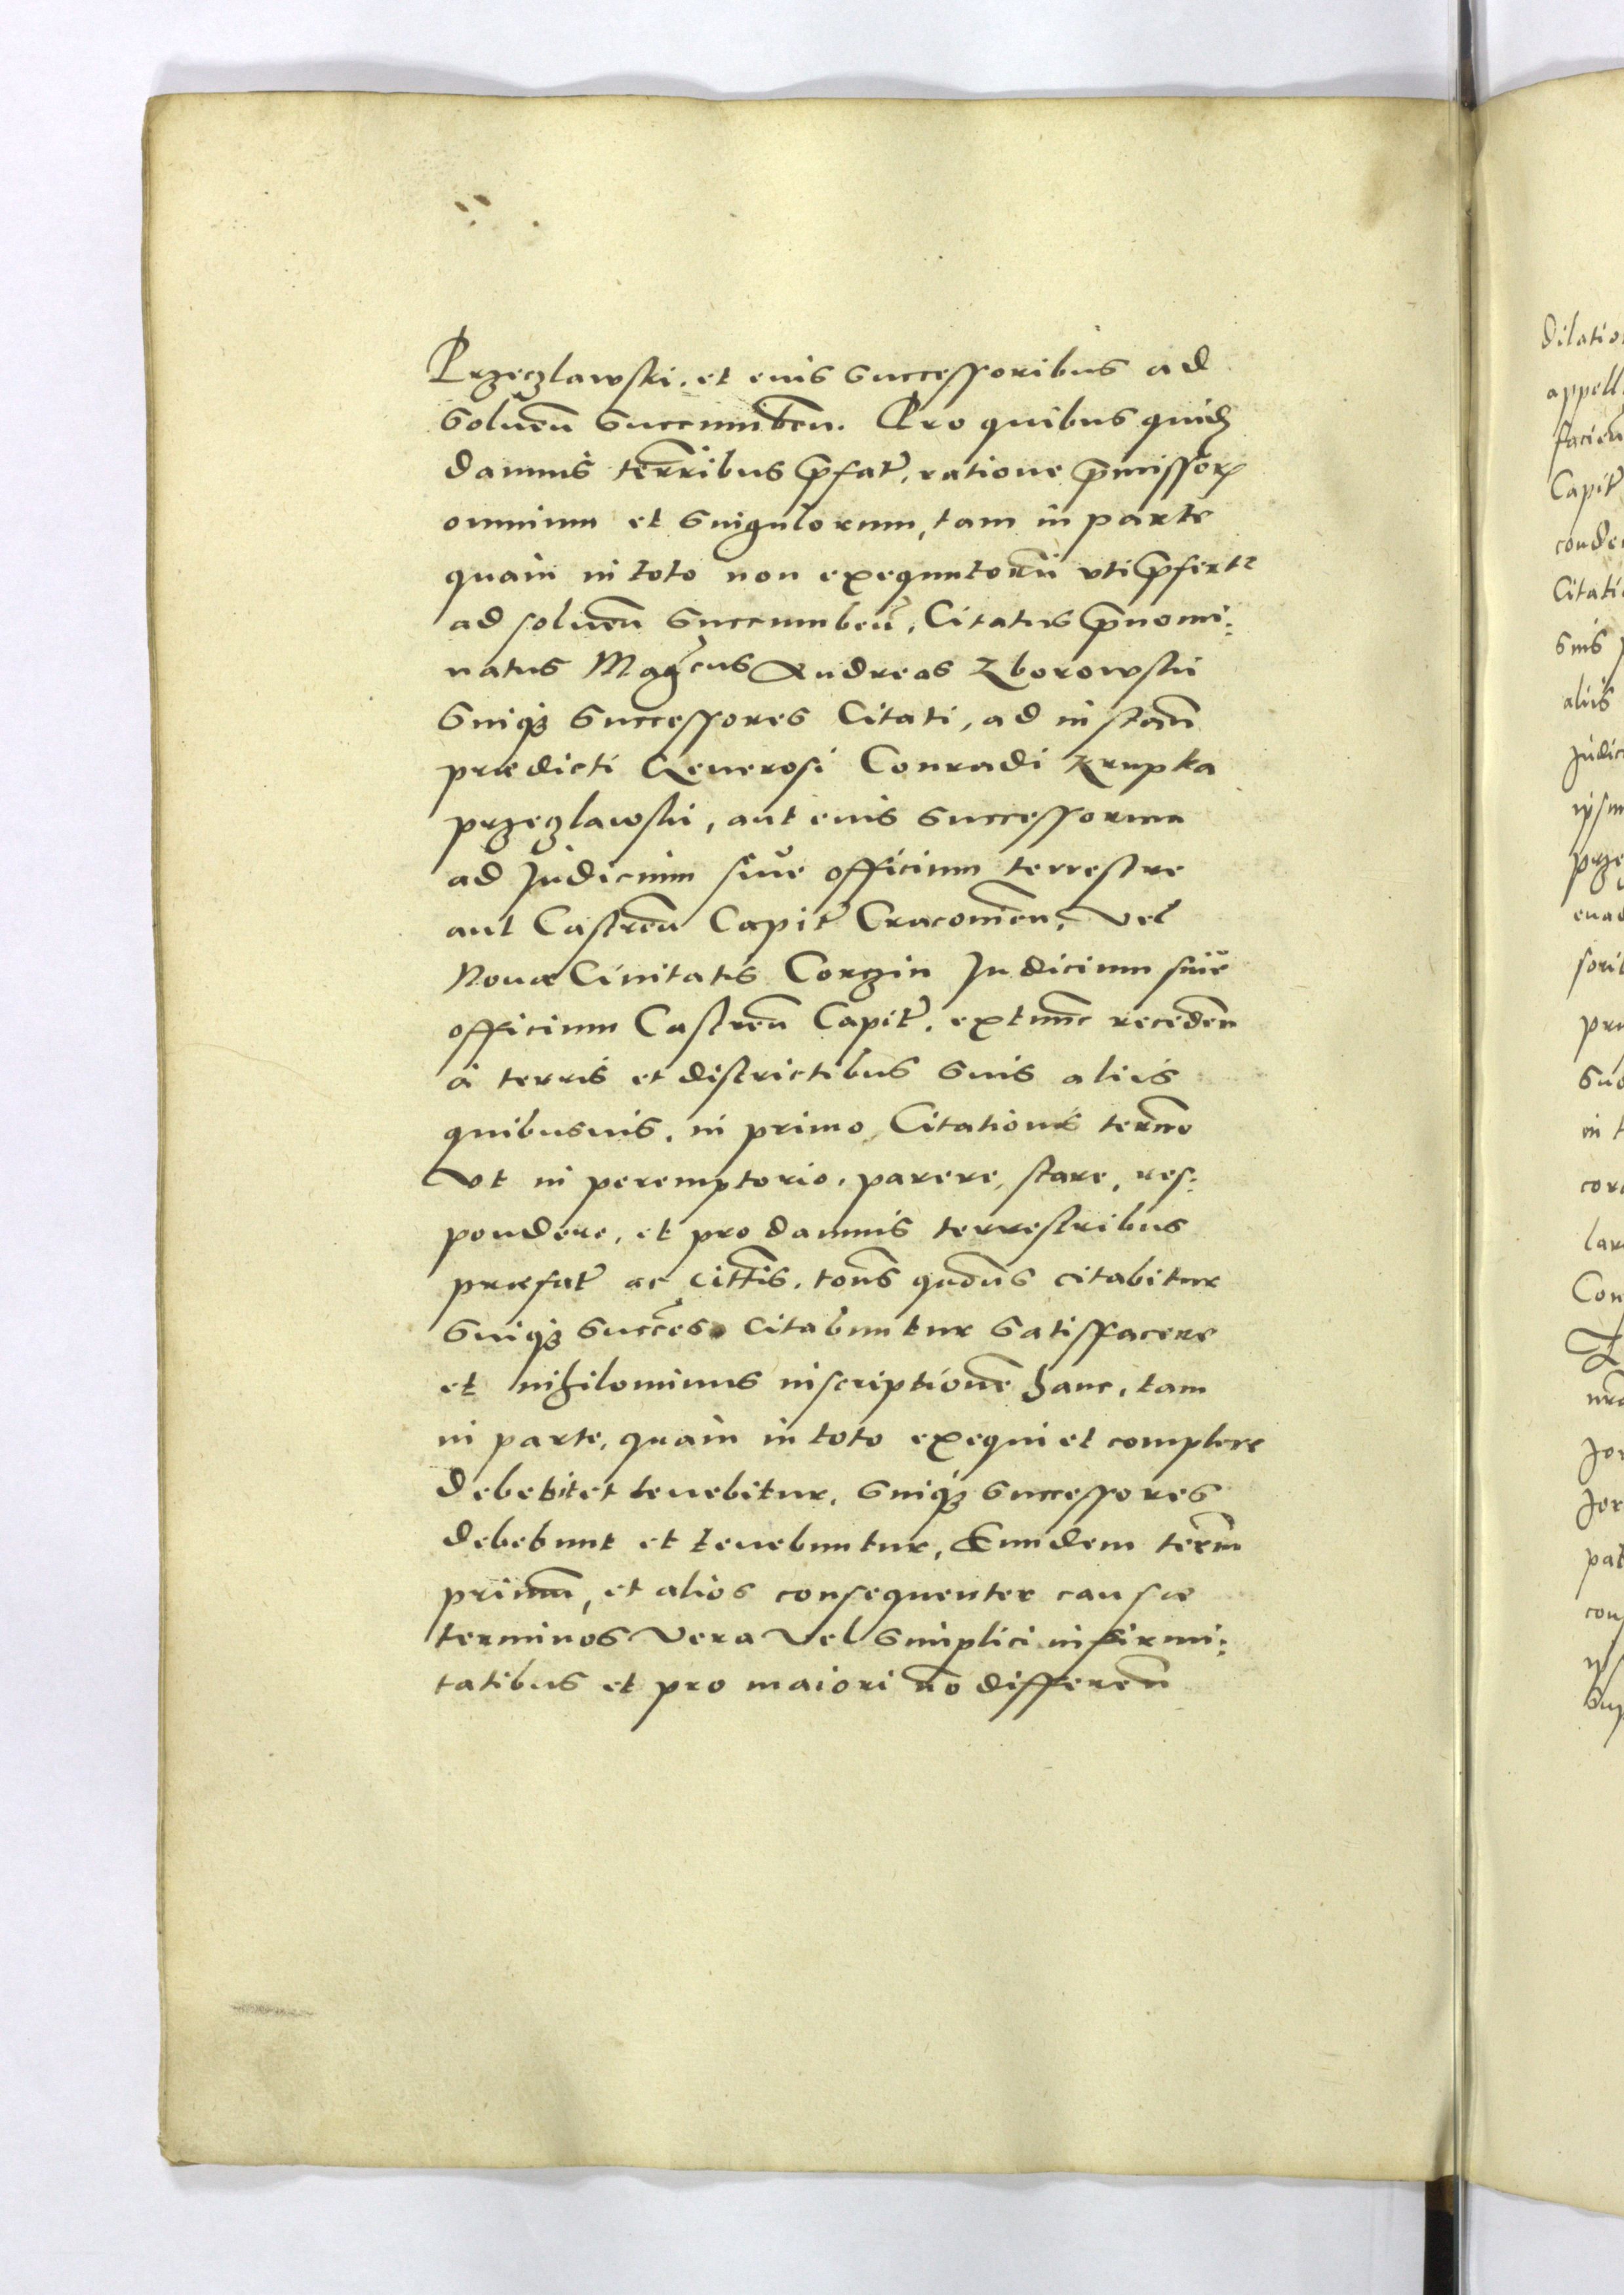 Przeczlawski. et eius successoribus ad
soluen̄ succumben̄. Pro quibus quid̨
damnis terr̄ribus p̄fat̃, ratione p̄missorꝝ
omnium et singulorum, tam in parte
quam in toto non exequutorū vti p̄fert̃
ad soluen̄ succumben̄, Citatus p̄nomi:
natus Mag̃cus Andreas Zborowski
suiqꝫ successores Citati, ad instan̄
prædicti Generosi Conradi Krupka
przeczlawski, aut euis successorum
ad Judicium siue officium terrestre
aut Castren̄ Capit̃ Cracouien̄, vel
Nouæ Ciuitatis Corczin Judicium siue
officium Castren̄ Capit̃. extunc receden̄
à terris et districtibus suis aliis
quibusuis. in primo Citationis termō
vt in peremptorio. parere, stare, res:
pondere, et pro damnis terrestribus
præfat̃ ac citt̄is. totīs quotīs citabitur
suiqꝫ succ̃es citabuntur satisfacere
et nihilominus inscriptionē hanc, tam
in parte, quam in toto exequi et complere
debebit et tenebitur, suiqꝫ successores
debebunt et tenebuntur, Eundem term̄
primū, et alios consequenter causæ
terminos vera vel simplici infirmi:
tatibus et pro maiori nō differen̄
dilatio
appell
facien̄
Capit̃
conde
Citati
suis
alijs
Judic
ipsu
prze
euad
sorib
pri
suo
in t
cor
lar
Con